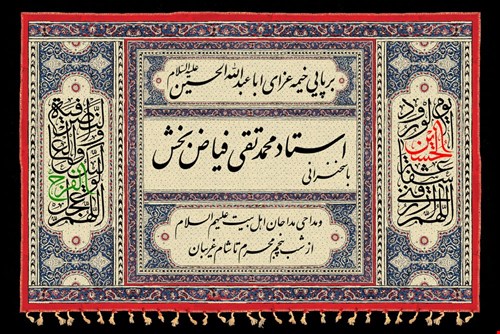 اللهم ارزقني شفاعة الحسين يوم الورود
برپایی خیمه عزای اباعبدالله الحسین علیه السلام
استاد محمد تقی فیاض بخش
با سخنرانی
و مداحی مداحان اهل بیت علیهم السلام
از شب پنجم محرم تا شام غریبان
اللهم عجل لوليك الفرج والعافية والنصر